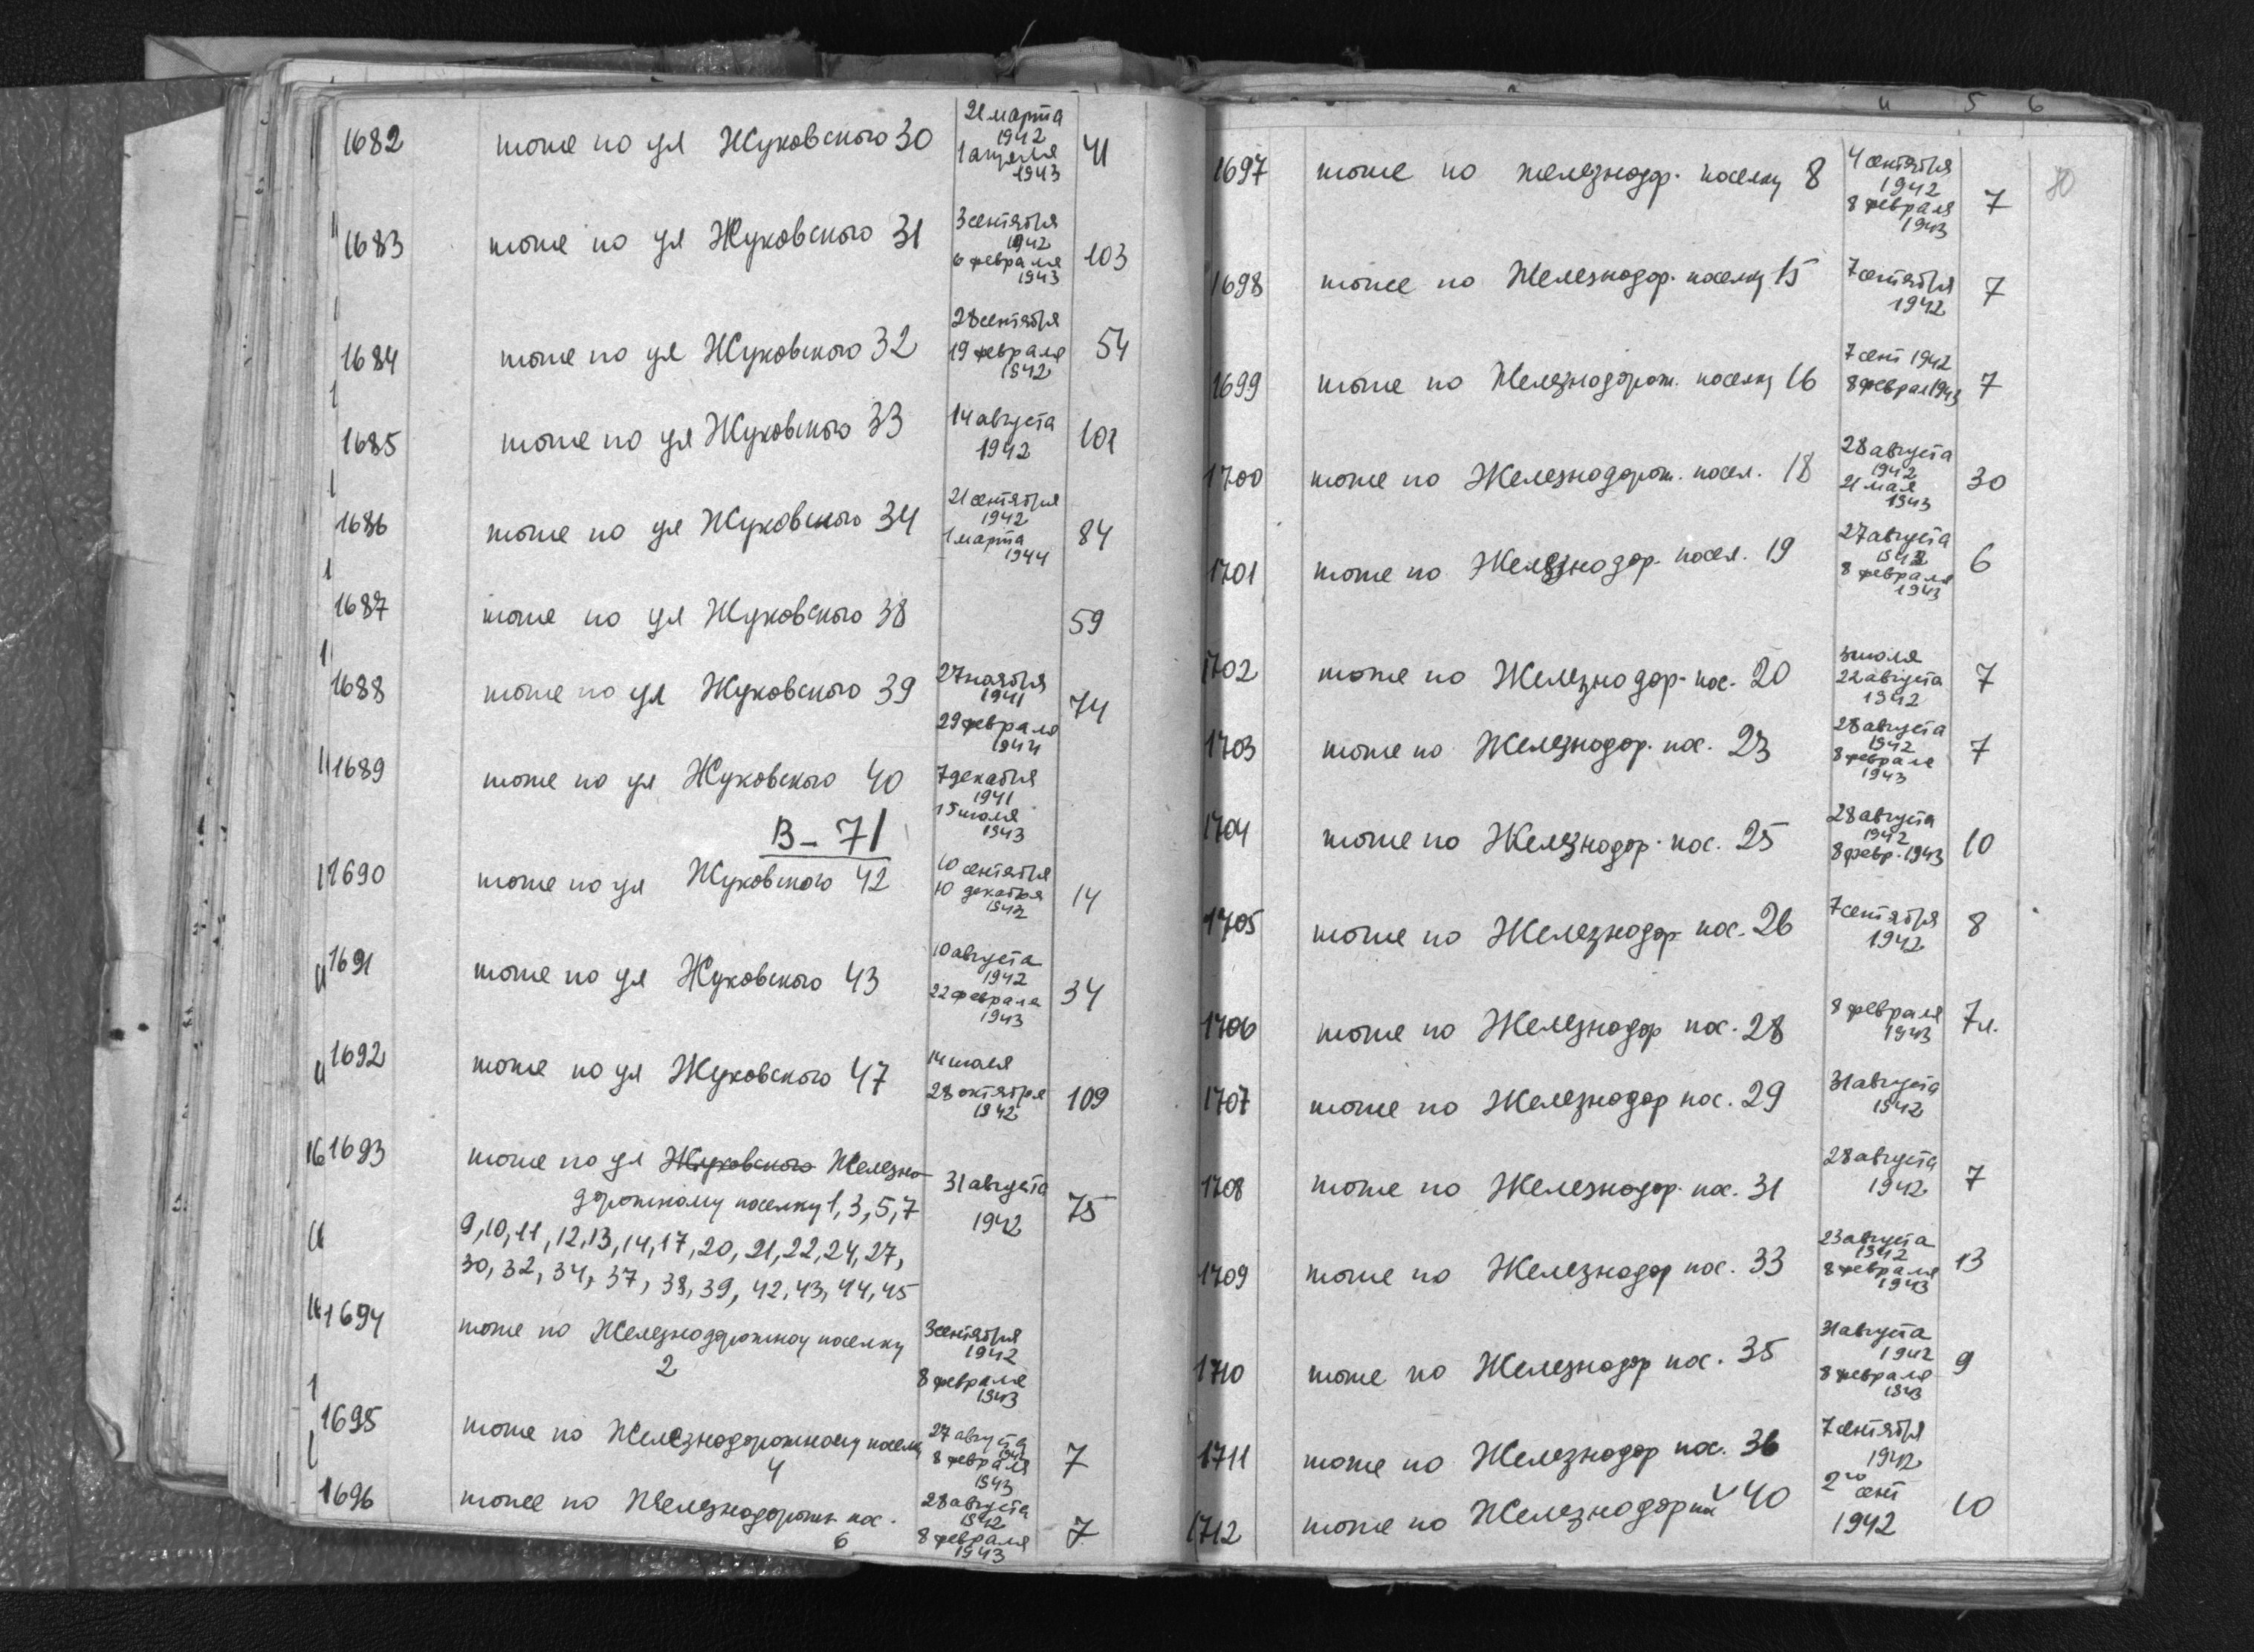 1682 тоже по ул Жуковского 30 21 марта 1942 1 апреля 1943 41
1683 тоже по ул Жуковского 31 3 сентября 1942 6 февраля 1943 103
1684 тоже по ул Жуковского 32 28 сентября 19 февраля 1942 54
1685 тоже по ул Жуковского 33 14 августа 1942 101
1686 тоже по ул Жуковского 34 21 сентября 1942 1 марта 1944 84
1687 тоже по ул Жуковского 38 59
1688 тоже по ул Жуковского 39 27 ноября 1941 29 февраля 1944 74
1689 тоже по ул Жуковского 40 7 декабря 1941 15 июля 1943
В-71
1690 тоже по ул Жуковского 42 10 сентября 10 декабря 1942 14
1691 тоже по ул Жуковского 43 10 августа 1942 22 февраля 1943 34
1692 тоже по ул Жуковского 47 14 июля 28 октября 1942 109
1693 тоже по ул Жуковского Железно-
дорожному поселку 1, 3, 5, 7 31 августа 1942 75
9, 10, 11, 12, 13, 14, 17, 20, 21, 22, 24, 27,
30, 32, 34, 37, 38, 39, 42, 43, 44, 45
1694 тоже по Железнодорожному поселку 3 сентября 1942
2 8 февраля 1943
1695 тоже по Железнодорожному поселку 27 августа 1942
4 8 февраля 1943 7
1696 тоже по Железнодорожн. пос. 28 августа 1942
6 8 февраля 1943 7
4 5 6
1697 тоже по железнодор. поселку 8 4 сентября 1942 8 февраля 1943 7
1698 тоже по Железнодор. поселку 15 7 сентября 1942 7
1699 тоже по Железнодорож. поселку 16 7 сент 1942 8 феврал 1943 7
1700 тоже по Железнодорож. посел. 18 28 августа 1942 21 мая 1943 30
1701 тоже по Железнодор. посел. 19 27 августа 1942 8 февраля 1943 6
1702 тоже по Железнодор. пос. 20 3 июля 22 августа 1942 7
1703 тоже по Железнодор. пос. 23 28 августа 1942 8 февраля 1943 7
1704 тоже по Железнодор. пос. 25 28 августа 1942 8 февр. 1943 10
1705 тоже по Железнодор пос. 26 7 сентября 1942 8
1706 тоже по Железнодор пос. 28 8 февраля 1943 7л.
1707 тоже по Железнодор пос. 29 31 августа 1942
1708 тоже по Железнодор. пос. 31 28 августа 1942 7
1709 тоже по Железнодор пос. 33 23 августа 1942 8 февраля 1943 13
1710 тоже по Железнодор пос. 35 31 августа 1942 8 февраля 1943 9
1711 тоже по Железнодор пос. 36 7 сентября 1942
1712 тоже по Железнодор 40 2го сент 1942 10